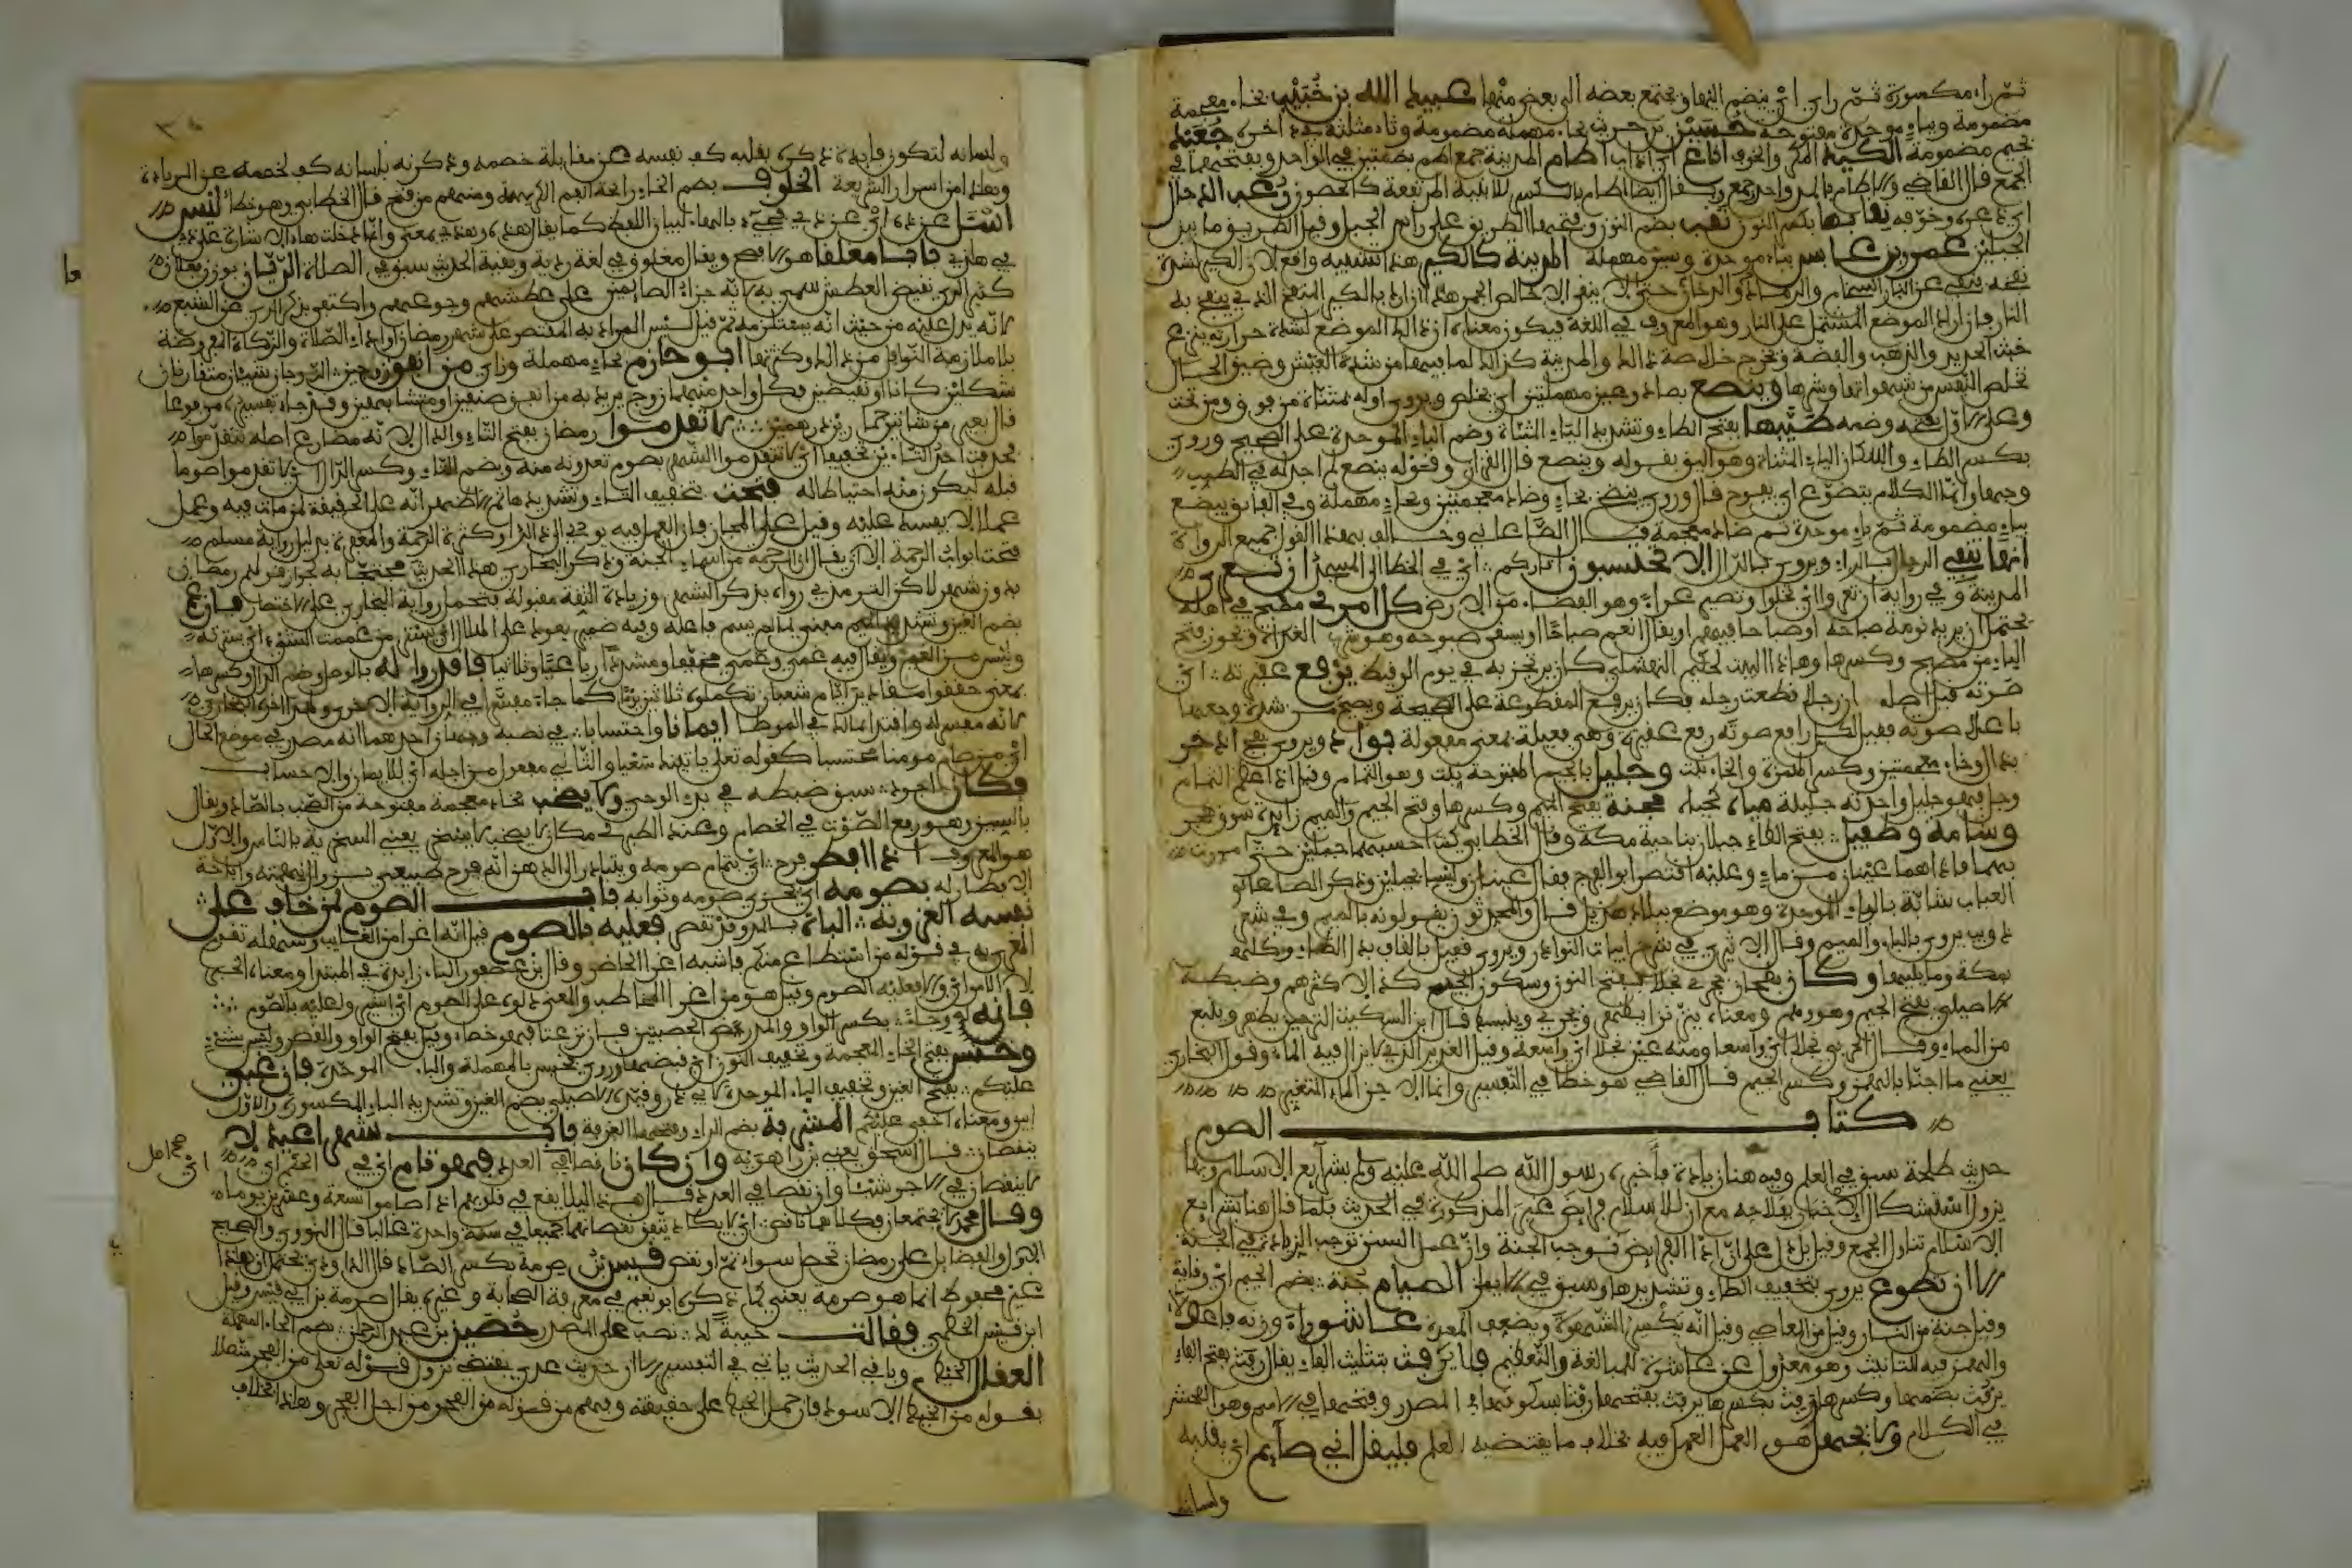 ثم راء مكسورة ثم زاي اي ينضم اليها ويجتمع بعضه الى بعض منها عبيد الله بن خبيب بخاء معجمة
مضمومة وباء موحدة مفتوحة حسين بن حريث بحاء مهملة مضمومة وثاء مثلثة اخره جعيد
بجيم مضمومة الكيد المكر والخوف اماع اي ذاب اطام المدينة جمع اطم بضمتين في الواحد وبفتحهما في
الجمع قال القاضي والاطام بالمد واحد وجمع ويقال ايضا اطام بالكسر للابنية المرتفعة كالحصون رعب الدجال
اي ذعره وخوفه نقابها بكسر النون نقب بضم النون وفتحها الطريق على راس الجبل وقيل الطريق ما بين
الجبلين عمرو بن عباس بباء موحدة وسين مهملة المدينة كالكير هذا تشبيه واقع لان الكير لشدة
نفخه ينفي عن النار السخام والرماد والدخان حتى لا يبقى الا خالص الجمر هذا ان اراد بالكير المنفخ الذي ينفخ به
النار وان اراد الموضع المشتمل على النار وهو المعروف في اللغة فيكون معناه ان ذلك الموضع لشدة حرارته ينزع
خبث الحديد والذهب والفضة ويخرج خلاصة ذلك والمدينة كذلك لما فيها من شدة العيش وضيق الحال
تخلص النفس من شهواتها وشرها وينصع بصاد وعين مهملتين اي يخلص ويروى اوله بمثناة من فوق ومن تحت
وعلى الاول فتحه وضمه طيبها بفتح الطاء وتشديد الياء المثناة وضم الباء الموحدة على الصحيح وروي
بكسر الطاء واسكان الياء المثناة وهو اليق بقوله وينصع قال القزاز وقوله ينصع لم اجد له في الطيب
وجها وانما الكلام يتضوع اي يفوح قال وروي ينضخ بخاء وضاد معجمتين وبحاء مهملة وفي الفائق يبضع
بباء مضمومة ثم باء موحدة ثم ضاد معجمة قال الصغاني وخالف بهذا القول جميع الرواة
انها تنفي الرجال بالراء ويروى بالدال الا تحتسبون اثاركم اي في الخطا الى المسجد ان تعرى
المدينة وفي رواية ان تعروا اي تخلوا وتصير عراء وهو الفضاء من الارض كل امرئ مصبح في اهله
يحتمل ان يريد نومه صباحه او صباحا فيهم او يقال انعم صباحا او يسقى صبوحه وهو شرب الغداة ويجوز فتح
الباء من مصبح وكسرها وهذا البيت لحكيم النهشلي كان يرتجز به في يوم الوقيط يرفع عقيرته اي
صوته قيل اصله ان رجلا قطعت رجله فكان يرفع المقطوعة على الصحيحة ويصيح من شدة وجعها
باعلى صوته فقيل لكل رافع صوته رفع عقيرته وهي فعيلة بمعنى مفعولة بواد ويروى بفج اذخر
بذال وخاء معجمتين وكسر الهمزة والخاء نبت وجليل بالجيم المفتوحة نبت وهو الثمام وقيل اذا عظم الثمام
وجل فهو جليل واحدته جليلة مياه مجنة بفتح الجيم وكسرها وفتح الجيم والميم زايدة سوق هجر
وشامة وطفيل بفتح الطاء جبلان بناحية مكة وقال الخطابي كنت احسبهما جبلين حتى مررت
بهما فاذا هما عينان من ماء وعليه اقتصر ابو الفرج فقال عينان وليسا بجبلين وذكر الصاغاني
العباب شابة بالباء الموحدة وهو موضع ببلاد هذيل قال والمحدثون يقولونه بالميم وفي شعر
ذويب يروى بالباء والميم وقال الاندلسي في شرح ابيات النوادر ويروى قفيل بالقاف بدل الطاء وكلمة
بمكة وما يليها وكان بطحان يجري نجلا بفتح النون وسكون الجيم كذا الاكثرهم وضبطه
الاصيلي بفتح الجيم وهو وهم ومعناه ينز نزا يظهر ويجري ويلبسه قال ابن السكيت النز حين يظهر وينبع
من الماء وقال الحربي نجلا اي واسعا ومنه عين نجلا اي واسعة وقيل الغدير الذي لا يزال فيه الماء وقول البخاري
يعني ماء اجنا بالهمز وكسر الجيم قال القاضي هو خطا في التفسير وانما الاجن الماء المتغير
كتاب الصوم
حديث طلحة سبق في العلم وفيه هنا زيادة فاخبره رسول الله صلى الله عليه وسلم بشرايع الاسلام وبها
يزول استشكال الاخبار بفلاحه مع ان للاسلام فرايض غير المذكورة في الحديث فلما قال هنا بشرايع
الاسلام تناول الجميع وقيل بل على ان اداء الفرايض توجب الجنة وان عمل السنن توجب الزيادة في الجنة
الا ان تطوع يروى بتخفيف الطاء وتشديدها وسبق في الايمان الصيام جنة بضم الجيم اي وقاية
وقيل جنة من النار وقيل من المعاصي وقيل انه يكسر الشهوة ويضعف المعدة عاشوراء وزنه فاعولاء
والهمز فيه للتانيث وهو معدول عن عاشرة للمبالغة والتعظيم فلا يرفث بتثليث الفاء يقال رفث بفتح الفاء
يرفث بضمها وكسرها ورفث بكسرها يرفث بفتحها رفثا بسكونها في المصدر وفتحها في الاسم وهو الفحش
في الكلام ولا يجهل هو العمل العمل فيه بخلاف ما يقتضيه العلم فليقل اني صايم اي بقلبه
ولسانه
ولسانه لتكون فايدة ذكره بقلبه كف نفسه عن مقابلة خصمه وذكره بلسانه كف لخصمه عن الزيادة
وهذا من اسرار الشريعة الخلوف بضم الخاء رايحة الفم الكريهة ومنهم من فتح قال الخطابي وهو خطا ليس
اشتل عنده اي عن ذي في بالهاء لبيان اللفظ كما يقال هذه وهذي بمعنى وانما دخلت هاء الاشارة على ذي
في هذي بابا مغلقا هو الافصح ويقال مغلوق في لغة ردية وبقية الحديث سبق في الصلاة الريان بوزن فعلان
كثير الري نقيض العطش سمي به لانه جزاء الصايمين على عطشهم وجوعهم واكتفي بذكر الري عن الشبع
لانه يدل عليه من حيث انه يستلزمه ثم قيل ليس المراد به المقتصر على شهر رمضان واداء الصلاة والزكاة المفروضة
بل ملازمة النوافل من ذلك وكثرتها ابو حازم بحاء مهملة وزاي من انفق زوجين الزوجان شيئان متقارنان
شكلين كانا او نقيضين فكل واحد منهما زوج يريد به من انفق صنفين او متشابهين وقد جاء تفسيره مرفوعا
قال بعيرين شاتين حمارين درهمين لا تقدموا رمضان بفتح التاء والدال لانه مضارع اصله تتقدموا
فحذفت احدى التاءين تخفيفا اي لا تتقدموا الشهر بصوم تعدونه منه وبضم التاء وكسر الدال اي لا تقدموا صوما
قبله ليكون منه احتياطا له فتحت بتخفيف التاء وتشديدها ثم الاظهر انه على الحقيقة لمن مات فيه وعمل
عملا لا يفسد عليه وقيل على المجاز فان العمل فيه يودي الى ذلك او كثرة الرحمة والمغفرة بدليل رواية مسلم
فتحت ابواب الرحمة الا ان يقال ان الرحمة من اسماء الجنة وذكر البخاري هذا الحديث محتجا به لجواز قولهم رمضان
بدون شهر لاكن الترمذي رواه بذكر الشهر وزيادة الثقة مقبولة فتحمل رواية البخاري على الاختصار فان غم
بضم الغين وتشديد الميم مبني لما لم يسم فاعله وفيه ضمير يعود على الهلال اي ستر من غممت الشيء اي سترته
وليس من الغيم ويقال فيه غمي وغمي مخففا ومشددا رباعيا وثلاثيا فاقدروا له بالوصل وضم الدال وكسرها
بمعنى حققوا مقادير ايام شعبان تكملوه ثلاثين يوما كما جاء مفسرا في الرواية الاخرى ولهذا اخره البخاري
لانه مفسر له واقتدى بمالك في الموطا ايمانا واحتسابا في نصبه وجهان احدهما انه مصدر في موضع الحال
اي من صام مومنا محتسبا كقوله تعلى ياتينك سعيا والثاني مفعول من اجله اي للايمان والاحتساب
فكان اجود سبق ضبطه في بدء الوحي ولا يصخب بخاء معجمة مفتوحة من الصخب بالصاد ويقال
بالسين وهو رفع الصوت في الخصام وعند الطبري مكان لا يصخب لا يسخر يعني السخرية بالناس والاول
هو المعروف اذا افطر فرح اي بتمام صومه ويتبادر الى الذهن انه فرح طبيعي بزوال نهمته واباحة
الافطار له بصومه اي بجزي صومه وثوابه باب الصوم لمن خاف على
نفسه العزوبة الباءة بالمد وقد تقصر فعليه بالصوم قيل انه اغرا من الغايب وسهله تقدم
المغرى به في قوله من استطاع منكم فاشبه اغرا الحاضر وقال ابن عصفور الباء زايدة في المبتدا ومعناه الخبر
لا الامر اي والا فعليه الصوم وقيل هو من اغرا المخاطب والمعنى دلوه على الصوم اي اشيروا عليه بالصوم
فانه له وجاء بكسر الواو والمد رض الخصيتين فان نزعتا فهو خصاء وقيل بفتح الواو والقصر وليس بشيء
وخنس بفتح الخاء المعجمة وتخفيف النون اي قبضها وروي بحبس بالمهملة والباء الموحدة فان غبي
عليكم بفتح الغين وتخفيف الباء الموحدة لابي ذر وقيده الاصيلي بضم الغين وتشديد الباء المكسورة والاول
ابين ومعناه خفي عليكم المشربة بضم الراء وفتحها الغرفة باب شهرا عيد لا
ينقصان قال اسحق يعني بن راهويه وان كان ناقصا في العدد فهو تام اي في الحكم اي
لا ينقصان في الاجر شيئا وان نقصا في العدد قال هذا ليلا يقع في قلوبهم اذا صاموا تسعة وعشرين يوما
وقال محمد لا يجتمعان وكلاهما ناقص اي لا يكاد يتفق نقصانهما جميعا في سنة واحدة غالبا قال النووي والصحيح
الاول والفضايل على رمضان تحصل سواء تم او نقص قيس بن صرمة بكسر الصاد قال الداودي يحتمل ان هذا
غير محفوظ انما هو صرمة يعني كما ذكره ابو نعيم في معرفة الصحابة وغيره يقال صرمة بن ابي قيس وقيل
ابن قيس الخطمي فقالت خيبة لك نصب على المصدر حصين بن عبد الرحمن بضم الحاء المهملة
العقال الخيط وباقي الحديث ياتي في التفسير الا ان حديث عدي يقتضي نزول قوله تعلى من الفجر متصلا
بقوله من الخيط الاسود فان حمل الخيط على حقيقته وفهم من قوله من الفجر من اجل الفجر وهذا بخلاف